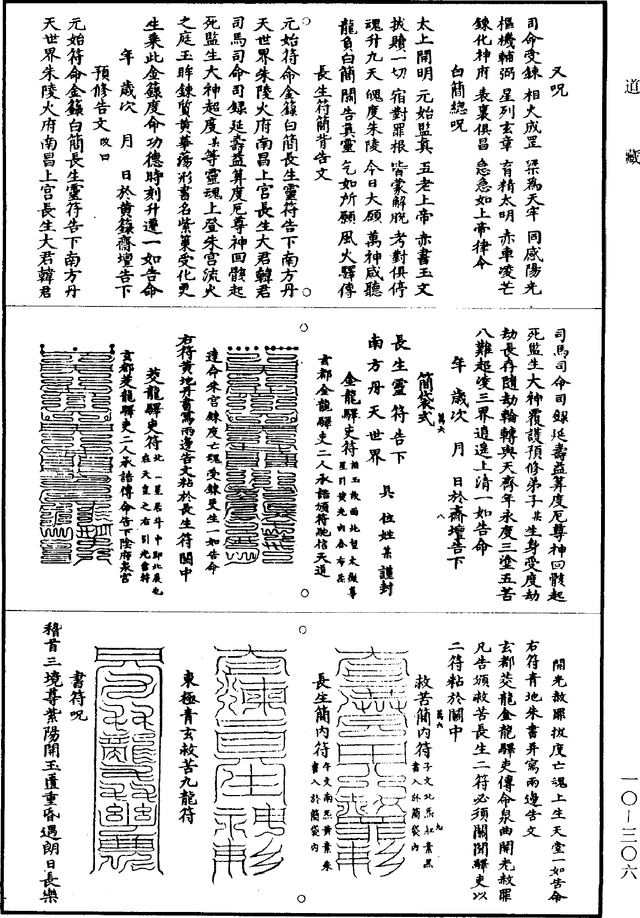 道藏
又呪
司命受鍊 相火成罡 梁為天牢 同感陽光
樞機輔弼 星列玄章 育精太明 赤車凌芒
鍊化神府 表裏俱昌 急急如上帝律令
白簡總呪
太上開明 元始監真 五老上帝 赤書玉文
拔贖一切 宿對罪根 皆蒙解脫 考對俱停
魂升九天 魄度朱陵 今日大願 萬神咸聽
龍負白簡 關告真靈 乞如所願 風火驛傳
長生符簡背告文
元始符命金籙白簡長生靈符告下南方丹
天世界朱陵火府南昌上宮長生大君韓君
司馬司命司錄延壽益算度厄尊神回骸起
死監生大神超度某等靈魂上登朱宮流火
之庭玉眸鍊質黃華蕩形書名紫籙受化更
生乘此金籙度命功德時刻升遷一如告命
年 歲次 月 日於黃籙齋壇告下
預修告文 改曰
元始符命金籙白簡長生靈符告下南方丹
天世界朱陵火府南昌上宮長生大君韓君
司馬司命司錄延壽益算度厄尊神回骸起
死監生大神覆護預修弟子某生身受度劫
劫長存隨劫輪轉與天齊年永度三塗五苦
八難超凌三界逍遙上清一如告命
年 歲次 月 日於齋壇告下
簡袋式
長生靈符告下
南方丹天世界 具位姓某謹封
金龍驛史符
玄都金龍驛吏二人承誥頒符馳信天道
達命朱宮鍊度亡魂受鍊更生一如告命
右符黃地丹書寫兩邊告文粘於長生符關中
茭龍驛吏符
玄都茭龍驛吏二人承誥傳命告下陰府泉宮
開光赦罪拔度亡魂上生天堂一如告命
右符青地朱書并寫兩邊告文
玄都茭龍金龍驛吏傳命泉曲開光赦罪
凡告頒救苦長生二符必須關閱驛吏以
二符粘於關中
救苦簡內符
長生簡內符
東極青玄救苦九龍符
書符呪
稽首三境尊紫陽開玉匱重昏遇朗日長樂
一〇-三〇六